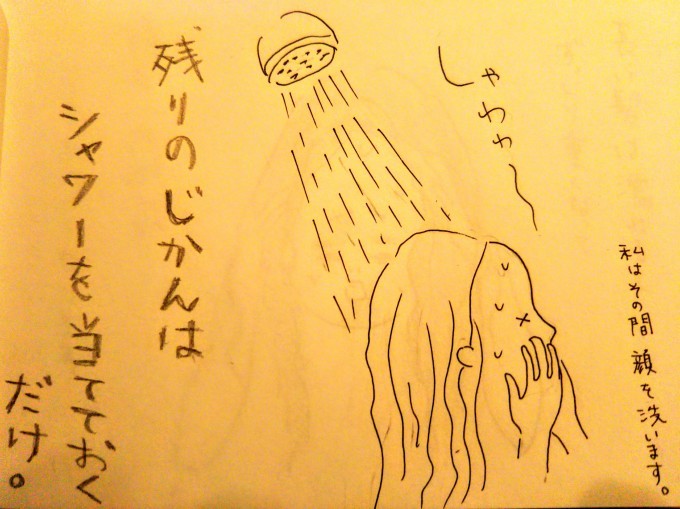 私はその間顔を洗います。
しゃわわ〜
残りのじかんは
シャワーを当てておく
だけ。